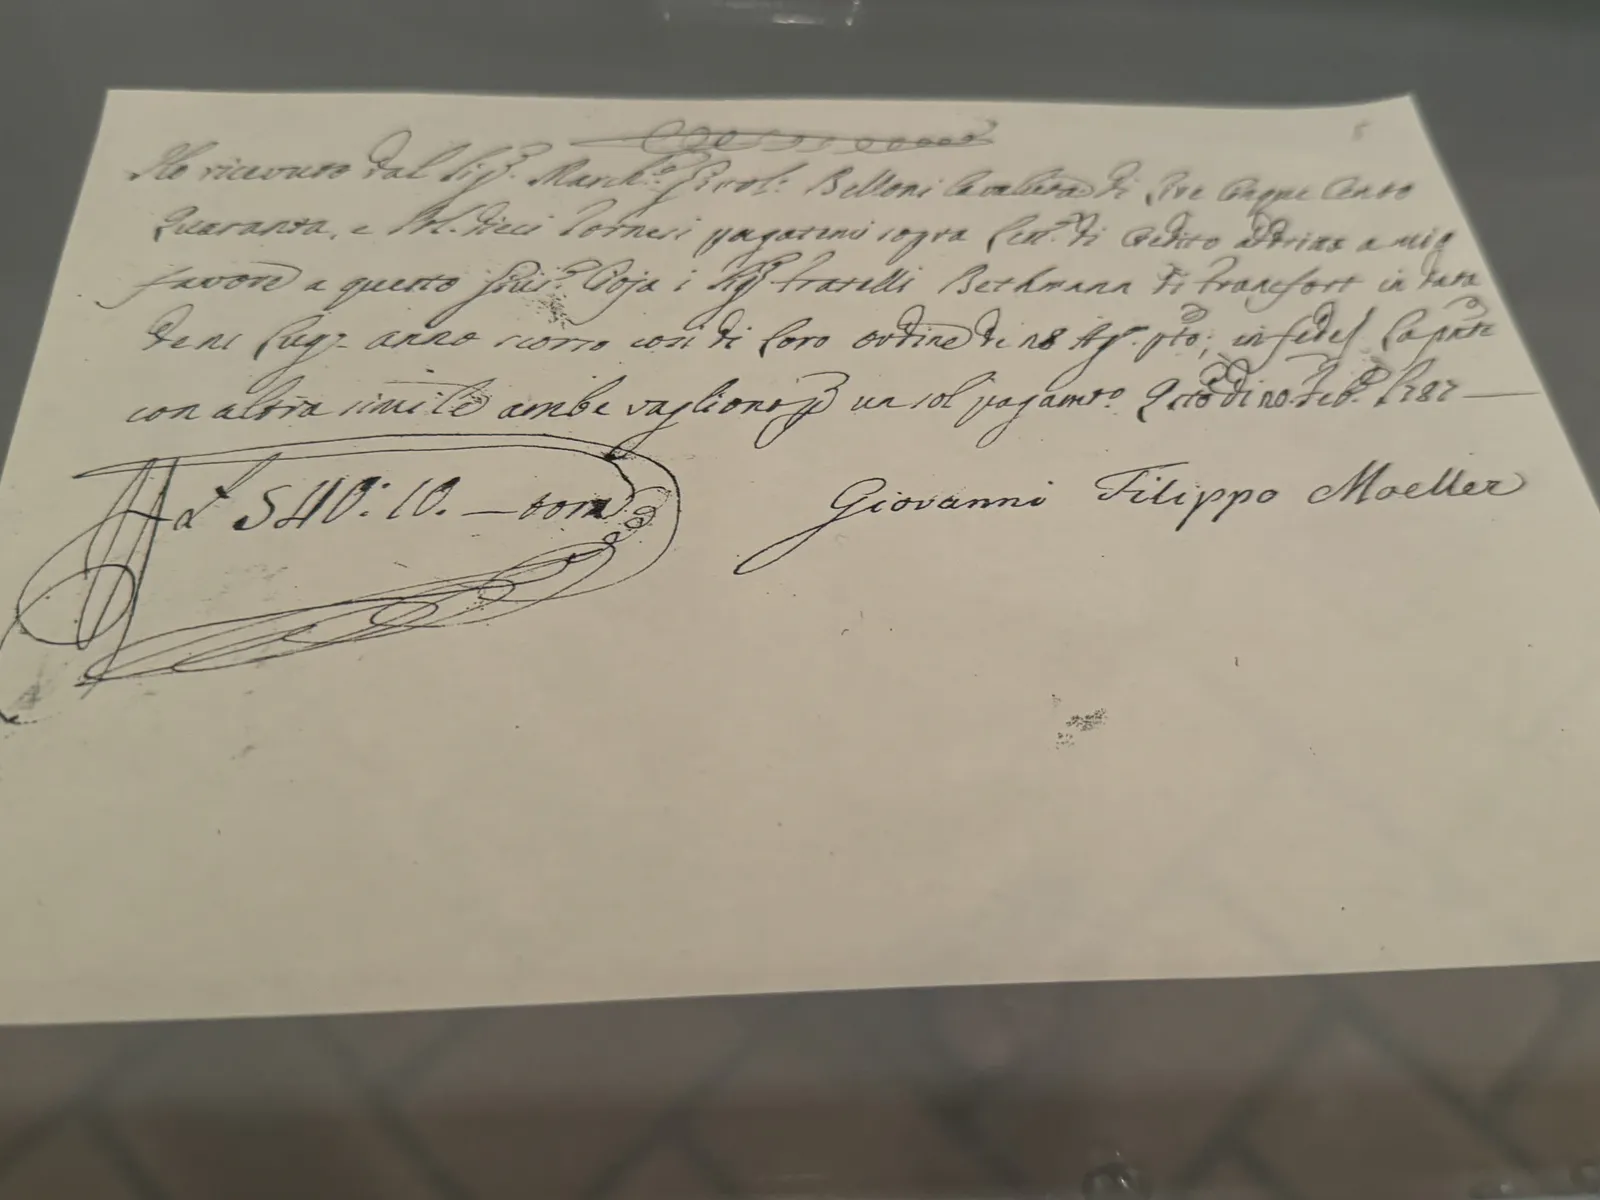 Ho ricevuto dal Sig.r March.e Girol.o Belloni Cavaliere di Lire Cinque Cento
Quaranta, e Sol. dieci Tornesi pagatemi sopra Lett.a di Credito a mio
favore a questo i Sig.ri fratelli Bethmann di francfort in data
de anno scorso così di loro ordine de 18 Ag.to in fede la pnte
con altra simile ambe vaglione p un sol pagamto. di 20. Feb.o 1787
d 540: 10. — torn
Giovanni Filippo Moeller